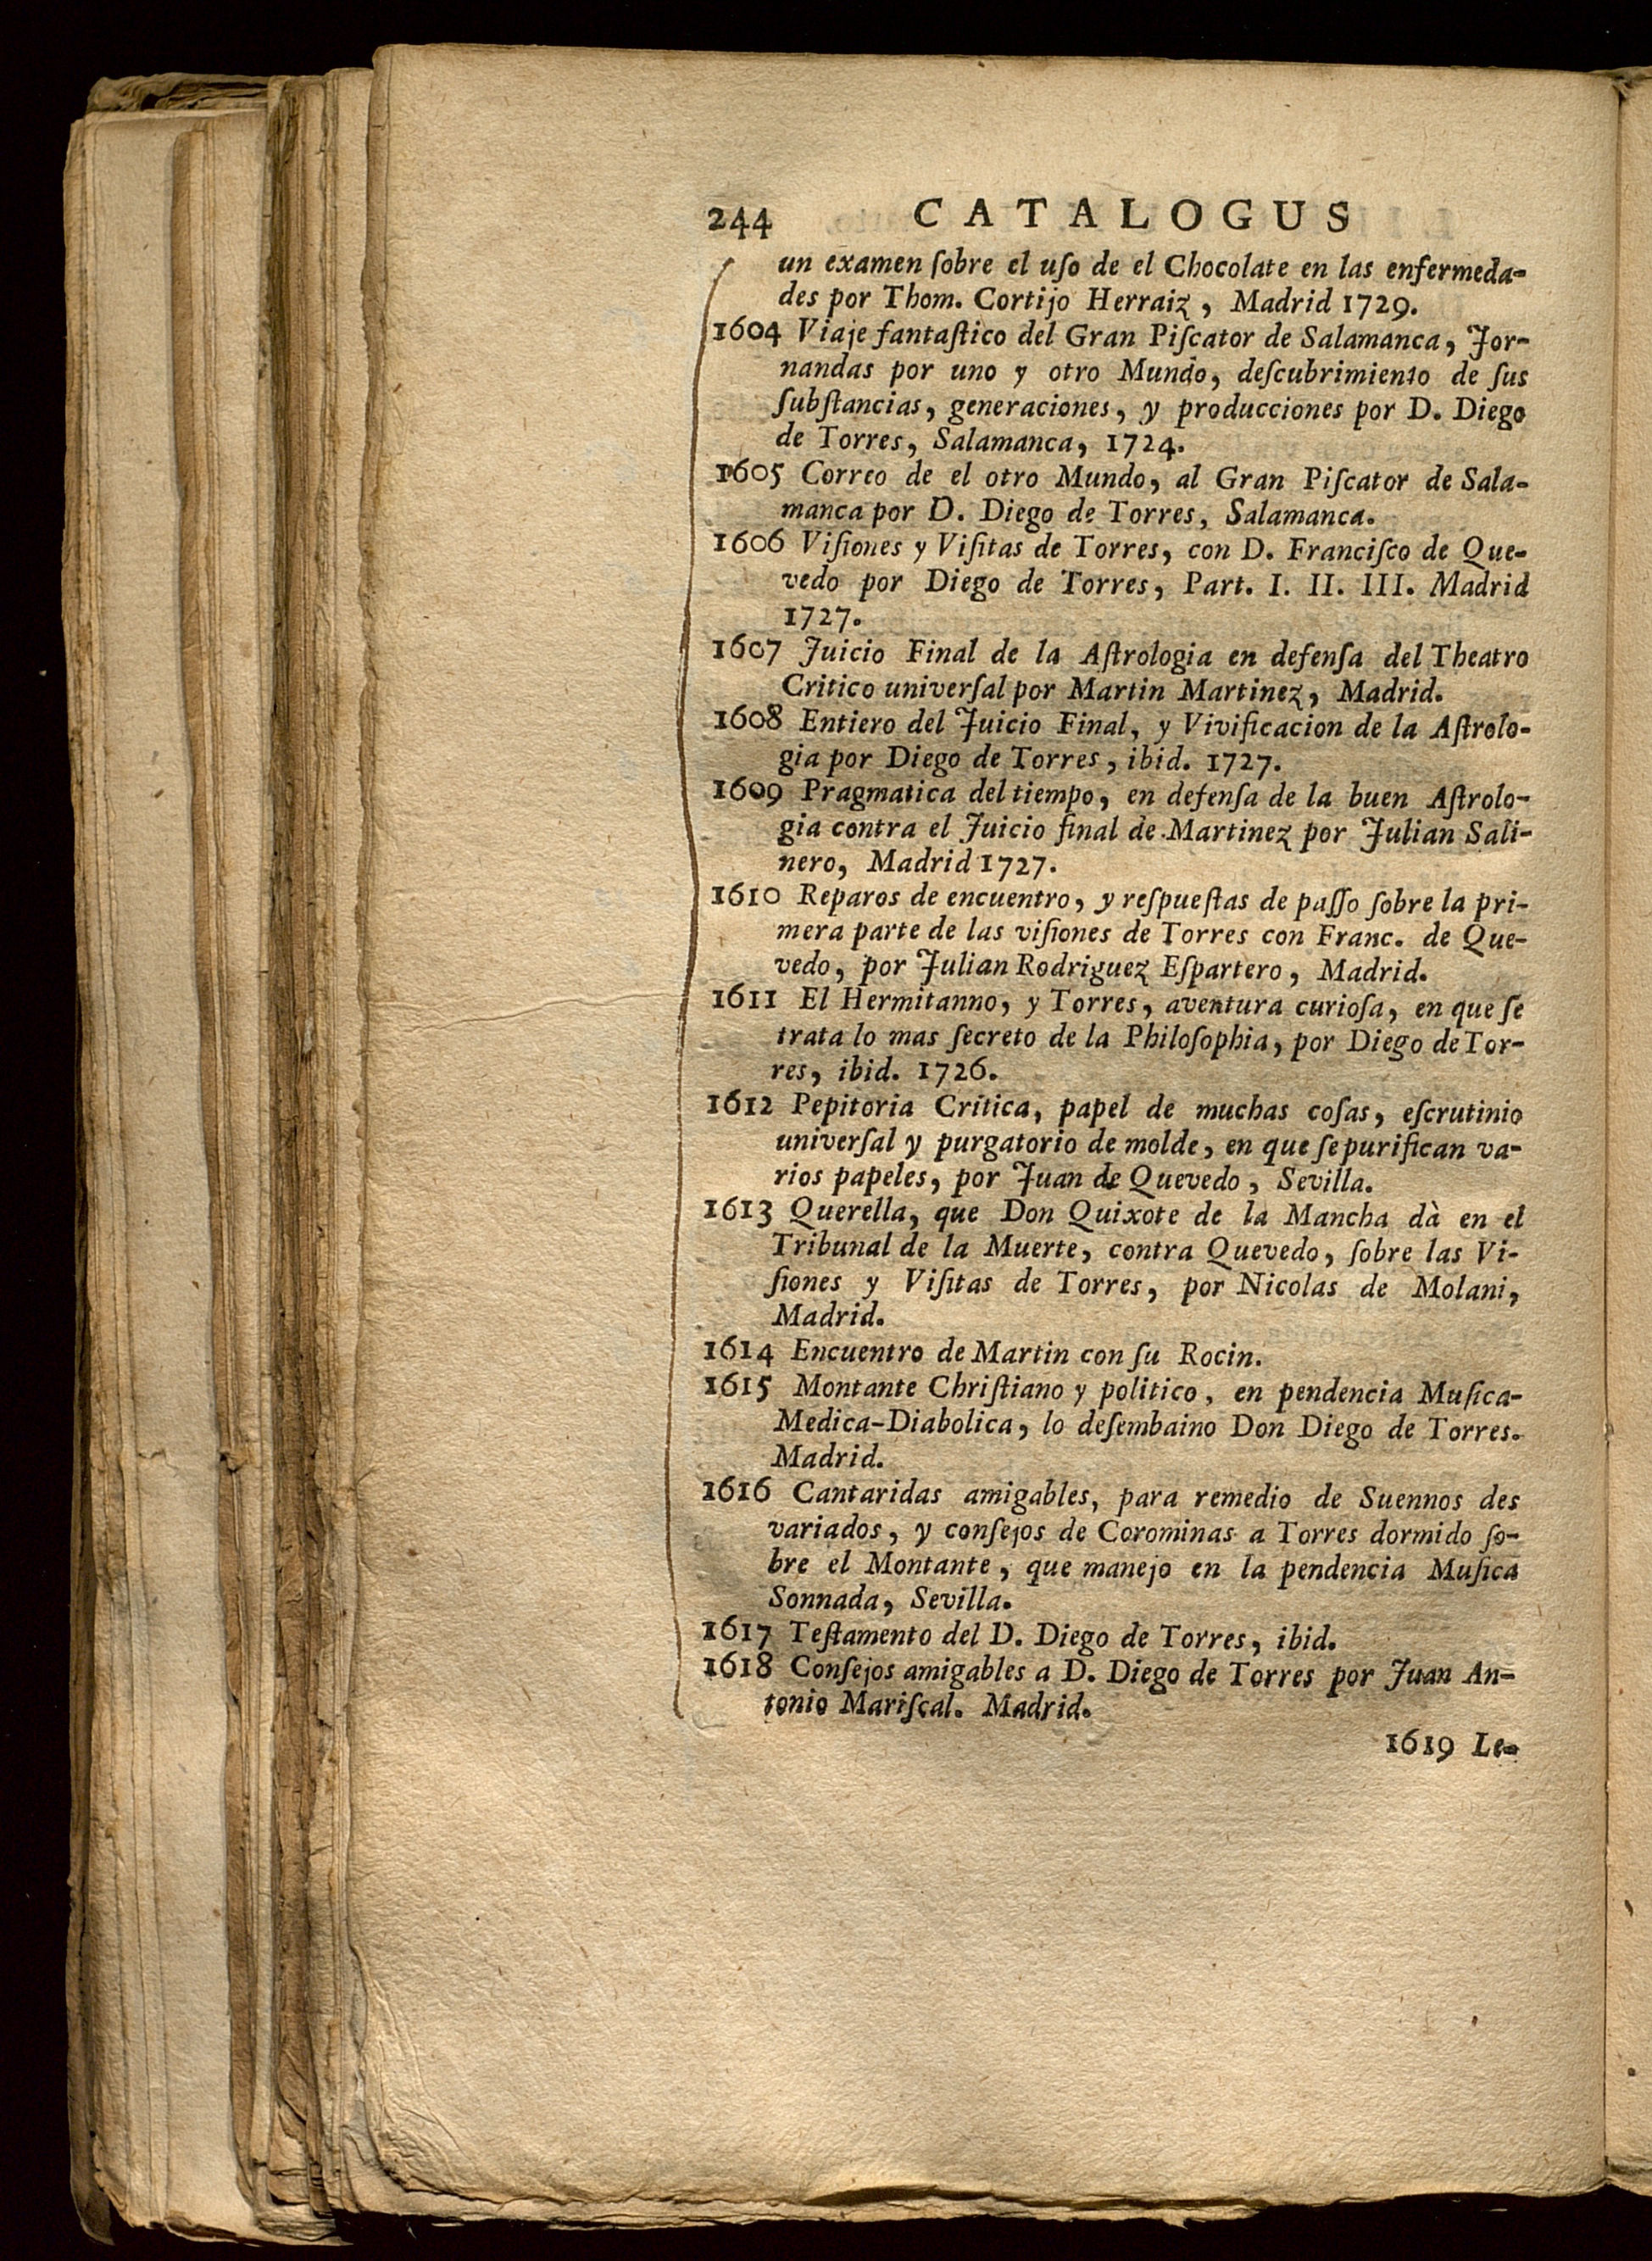 244 CATALOGUS
un examen ſobre el uſo de el Chocolate en las enfermeda-
des por Thom. Cortijo Herraiz, Madrid 1729.
1604 Viaje fantaſtico del Gran Piſcator de Salamanca, Jor-
nandas por uno y otro Mundo, deſcubrimiento de ſus
ſubſtancias, generaciones, y producciones por D. Diego
de Torres, Salamanca, 1724.
1605 Correo de el otro Mundo, al Gran Piſcator de Sala-
manca por D. Diego de Torres, Salamanca.
1606 Viſiones y Viſitas de Torres, con D. Franciſco de Que-
vedo por Diego de Torres, Part. I. II. III. Madrid
1727.
1607 Juicio Final de la Aſtrologia en defenſa del Theatro
Critico univerſal por Martin Martinez, Madrid.
1608 Entiero del Juicio Final, y Vivificacion de la Aſtrolo-
gia por Diego de Torres, ibid. 1727.
1609 Pragmatica del tiempo, en defenſa de la buen Aſtrolo-
gia contra el Juicio final de Martinez por Julian Sali-
nero, Madrid 1727.
1610 Reparos de encuentro, y reſpueſtas de paſſo ſobre la pri-
mera parte de las viſiones de Torres con Franc. de Que-
vedo, por Julian Rodriguez Eſpartero, Madrid.
1611 El Hermitanno, y Torres, aventura curioſa, en que ſe
trata lo mas ſecreto de la Philoſophia, por Diego de Tor-
res, ibid. 1726.
1612 Pepitoria Critica, papel de muchas coſas, eſcrutinio
univerſal y purgatorio de molde, en que ſe purifican va-
rios papeles, por Juan de Quevedo, Sevilla.
1613 Querella, que Don Quixote de la Mancha dà en el
Tribunal de la Muerte, contra Quevedo, ſobre las Vi-
ſiones y Viſitas de Torres, por Nicolas de Molani,
Madrid.
1614 Encuentro de Martin con ſu Rocin.
1615 Montante Chriſtiano y politico, en pendencia Muſica-
Medica-Diabolica, lo deſembaino Don Diego de Torres.
Madrid.
1616 Cantaridas amigables, para remedio de Suennos des
variados, y conſejos de Corominas a Torres dormido ſo-
bre el Montante, que manejo en la pendencia Muſica
Sonnada, Sevilla.
1617 Teſtamento del D. Diego de Torres, ibid.
1618 Conſejos amigables a D. Diego de Torres por Juan An-
tonio Mariſcal. Madrid.
1619 Le-